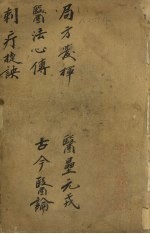 局方發揮
醫壘元戎
醫法心傳
古今醫論
刺疔捷訣